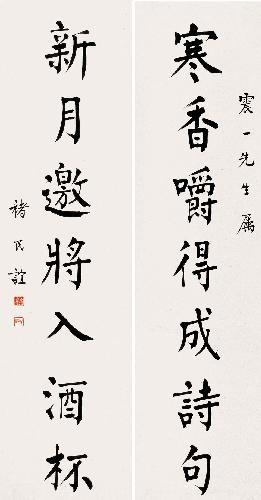 震一先生属
寒香嚼得成詩句
新月邀將入酒杯
褚民誼